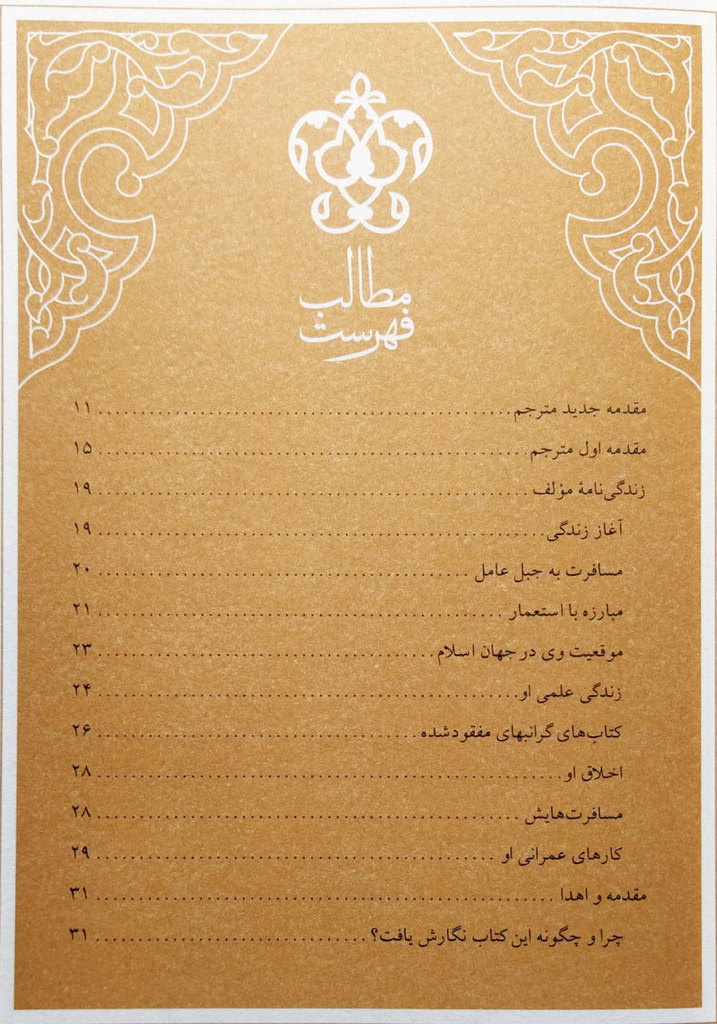 فهرست
مطالب
مقدمه جدید مترجم ........ ۱۱
مقدمه اول مترجم ........ ۱۵
زندگی‌نامهٔ مؤلف ........ ۱۹
آغاز زندگی ........ ۱۹
مسافرت به جبل عامل ........ ۲۰
مبارزه با استعمار ........ ۲۱
موقعیت وی در جهان اسلام ........ ۲۳
زندگی علمی او ........ ۲۴
کتاب‌های گرانبهای مفقود شده ........ ۲۶
اخلاق او ........ ۲۸
مسافرت‌هایش ........ ۲۸
کارهای عمرانی او ........ ۲۹
مقدمه و اهدا ........ ۳۱
چرا و چگونه این کتاب نگارش یافت؟ ........ ۳۱